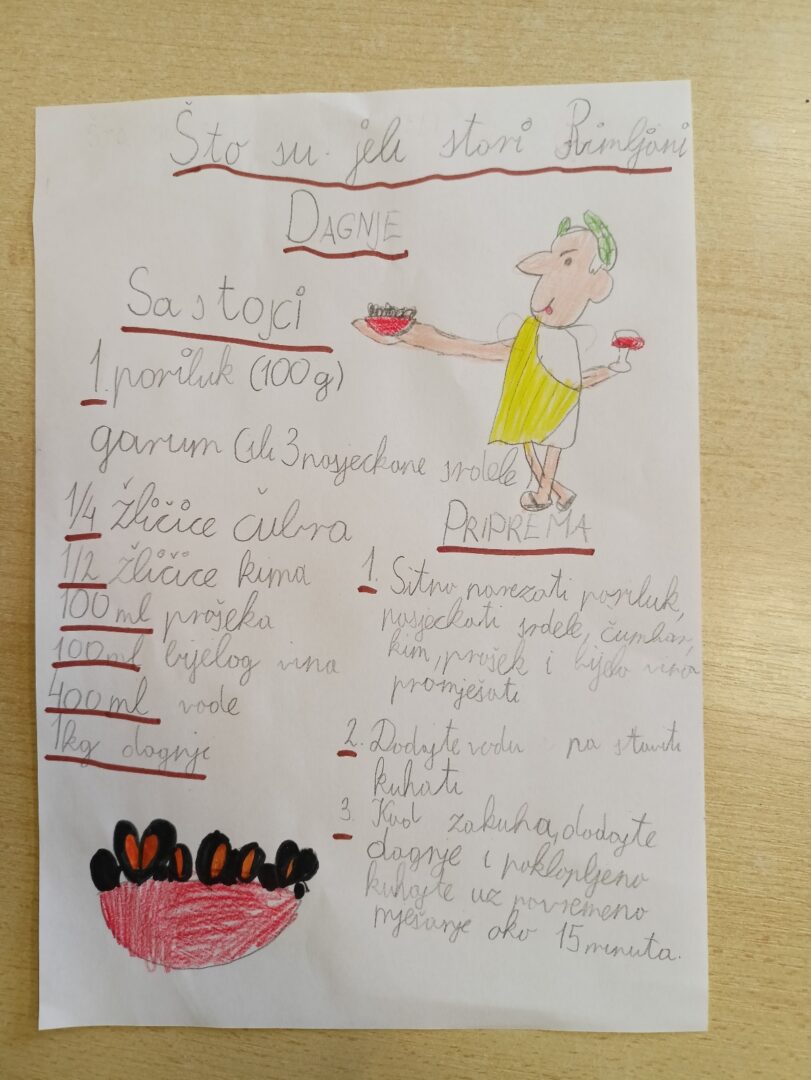 Što su jeli stari Rimljani
DAGNJE
Sastojci
1. poriluk (100 g)
garum (ili 3 nasjeckane srdele
1/4 žličice čubra
1/2 žličice kima
100 ml prošeka
100 ml bijelog vina
400 ml vode
1kg dagnje
PRIPREMA
1. Sitno narezati poriluk,
nasjeckati srdele, čumbar,
kim, prošek i bijelo vino
promješati
2. Dodajte vodu pa staviti
kuhati
3. Kad zakuha, dodajte
dagnje i poklopljeno
kuhajte uz povremeno
mješanje oko 15 minuta.